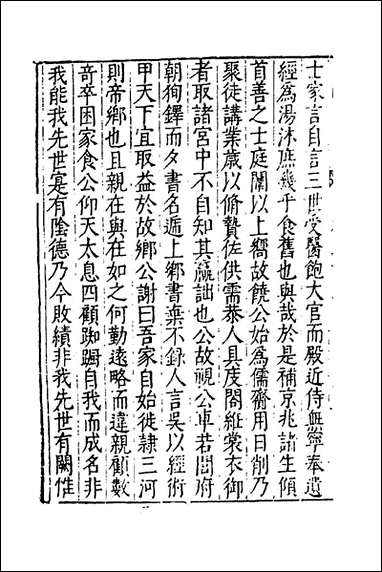 士家言自言三世受醫飽大官而嚴近侍無寧奉遺
經爲湯沐庶幾乎食舊也與哉於是補京兆諸生傾
首善之士庭闈以上嚮故饒公始爲儒齋用日削乃
聚徒講業歲以脩贄佐供需蔡人且度閣維裳衣御
者取諸宮中不自知其羸詘也公故視公車若閭府
朝徇鐸而夕書名遁上鄉書棄不錄人言吳以經術
甲天下宜取益於故鄉公謝曰吾家自始徙隸三河
則帝鄉也且親在與在如之何勤遠略而違親顧數
奇卒困家食公仰天太息四顧踟躕自我而成名非
我能我先世寔有陰德乃今敗績非我先世有闕惟